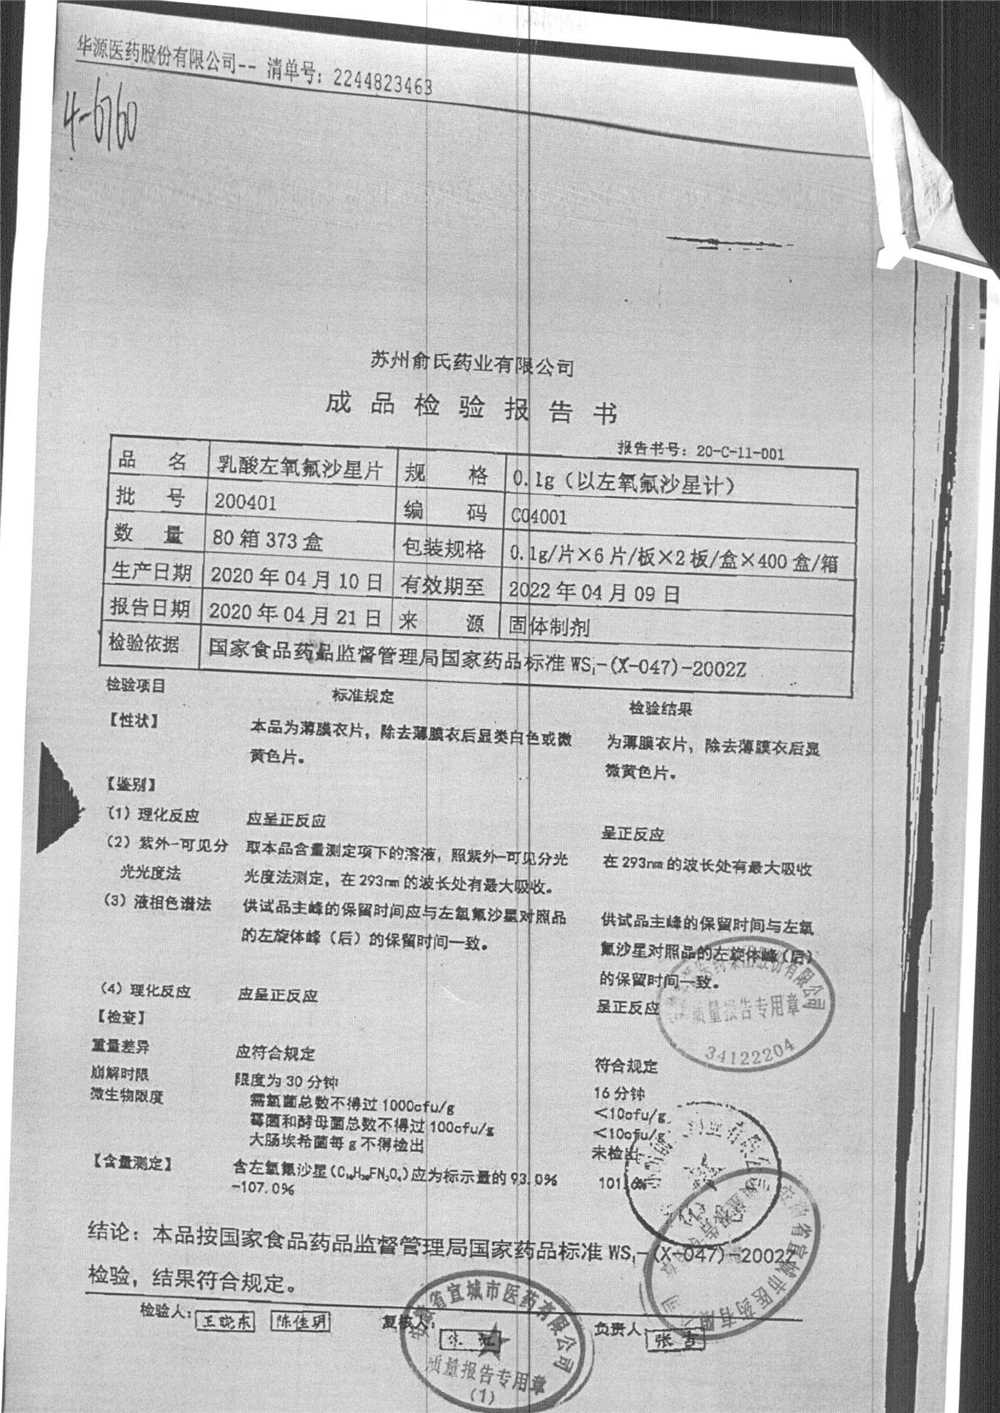 华源医药股份有限公司-- 清单号：2244823463
4-6760
苏州俞氏药业有限公司
成品检验报告书
报告书号：20-C-11-001
品 名 乳酸左氧氟沙星片 规 格 0.1g（以左氧氟沙星计）
批 号 200401 编 码 C04001
数 量 80箱373盒 包装规格 0.1g/片×6片/板×2板/盒×400盒/箱
生产日期 2020年04月10日 有效期至 2022年04月09日
报告日期 2020年04月21日 来 源 固体制剂
检验依据 国家食品药品监督管理局国家药品标准WS₁-(X-047)-2002Z
检验项目 标准规定 检验结果
【性状】 本品为薄膜衣片，除去薄膜衣后显类白色或微 为薄膜衣片，除去薄膜衣后显
黄色片。 微黄色片。
【鉴别】
(1) 理化反应 应呈正反应 呈正反应
(2) 紫外-可见分 取本品含量测定项下的溶液，照紫外-可见分光 在293nm的波长处有最大吸收
光光度法 光度法测定，在293nm的波长处有最大吸收。
(3) 液相色谱法 供试品主峰的保留时间应与左氧氟沙星对照品 供试品主峰的保留时间与左氧
的左旋体峰（后）的保留时间一致。 氟沙星对照品的左旋体峰（后）
的保留时间一致。
(4) 理化反应 应呈正反应 呈正反应
【检查】
重量差异 应符合规定 符合规定
崩解时限 限度为30分钟 16分钟
微生物限度 需氧菌总数不得过1000cfu/g <10cfu/g
霉菌和酵母菌总数不得过100cfu/g <10cfu/g
大肠埃希菌每g不得检出 未检出
【含量测定】 含左氧氟沙星(C₁₈H₂₀FN₃O₄)应为标示量的93.0% 101.6%
-107.0%
质量报告专用章
34122204
结论：本品按国家食品药品监督管理局国家药品标准WS₁-(X-047)-2002Z
检验，结果符合规定。
检验人：王晓东 陈佳玥 复核人： 负责人：张吉
安徽省宜城市医药有限公司
质量报告专用章
(1)